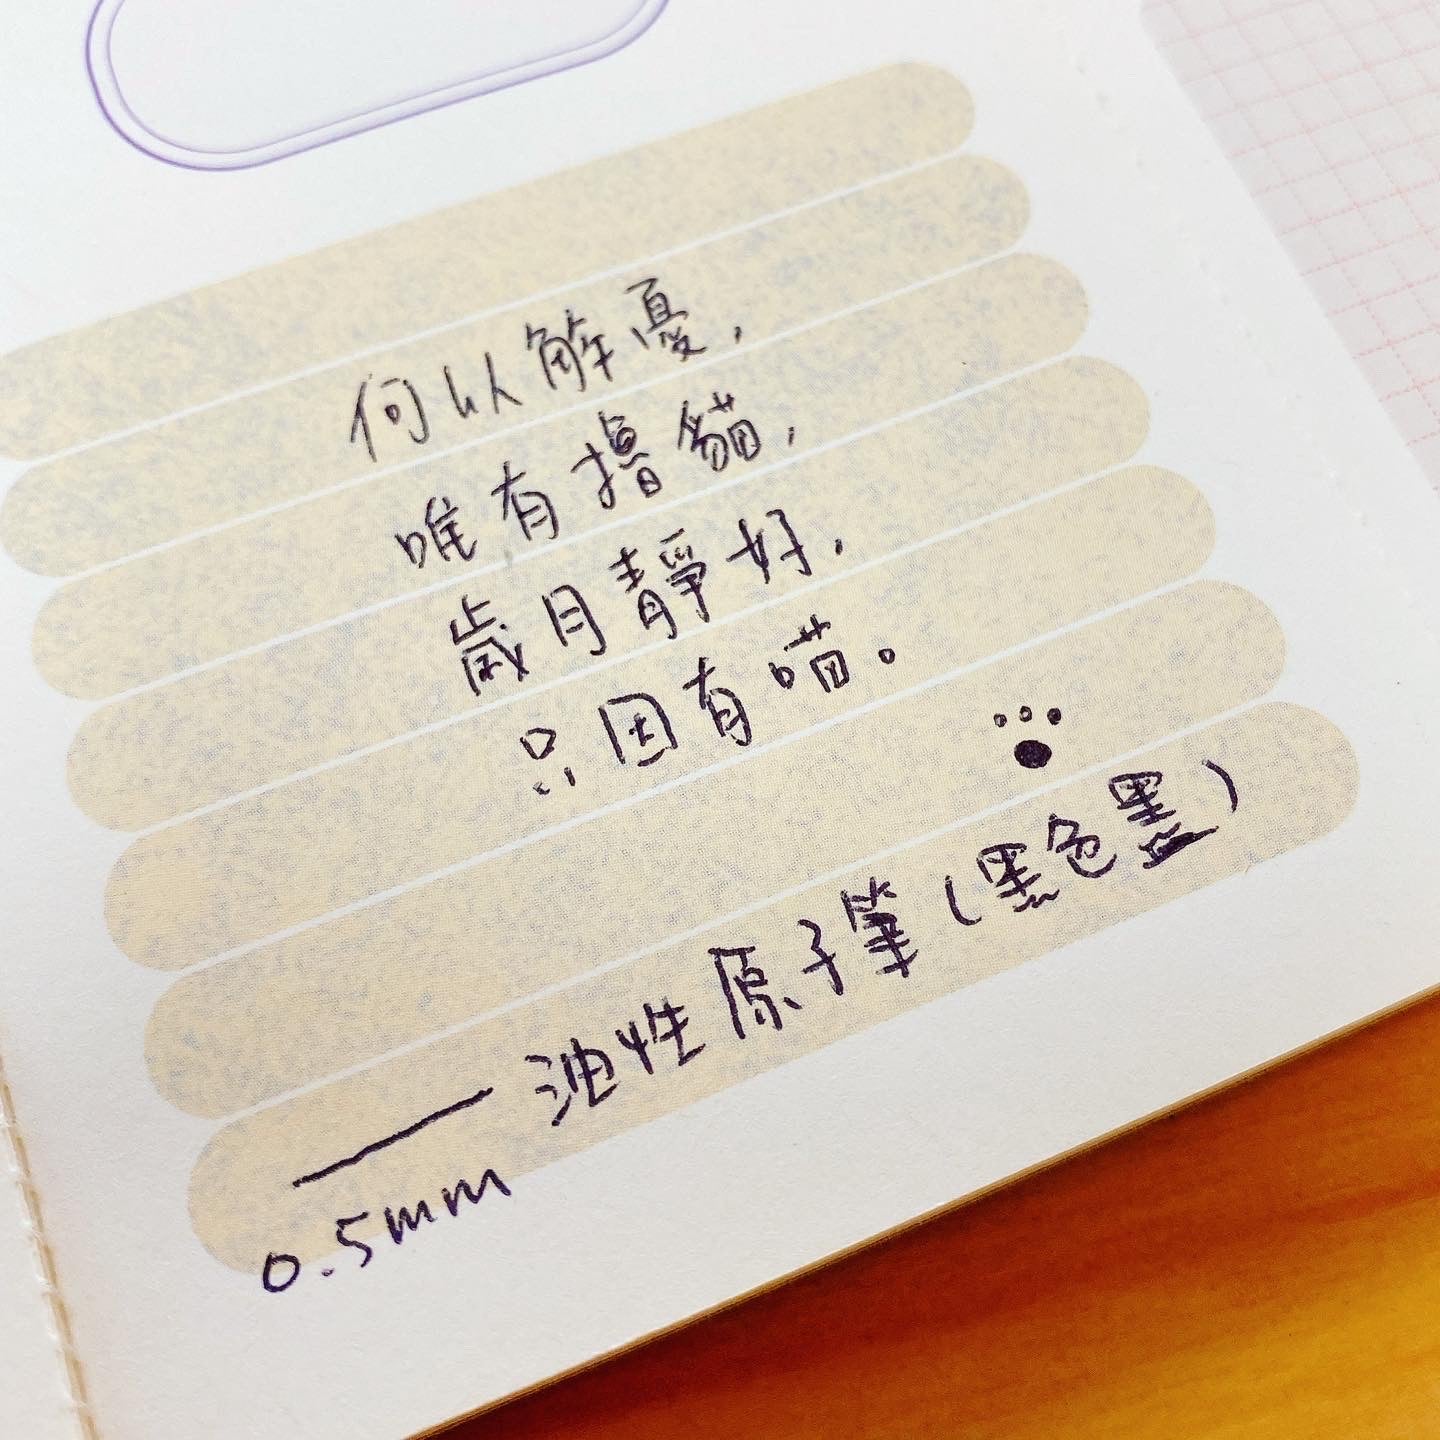 何以解憂，
唯有擼貓，
歲月靜好，
只因有喵。
油性原子筆（黑色墨）
0.5mm